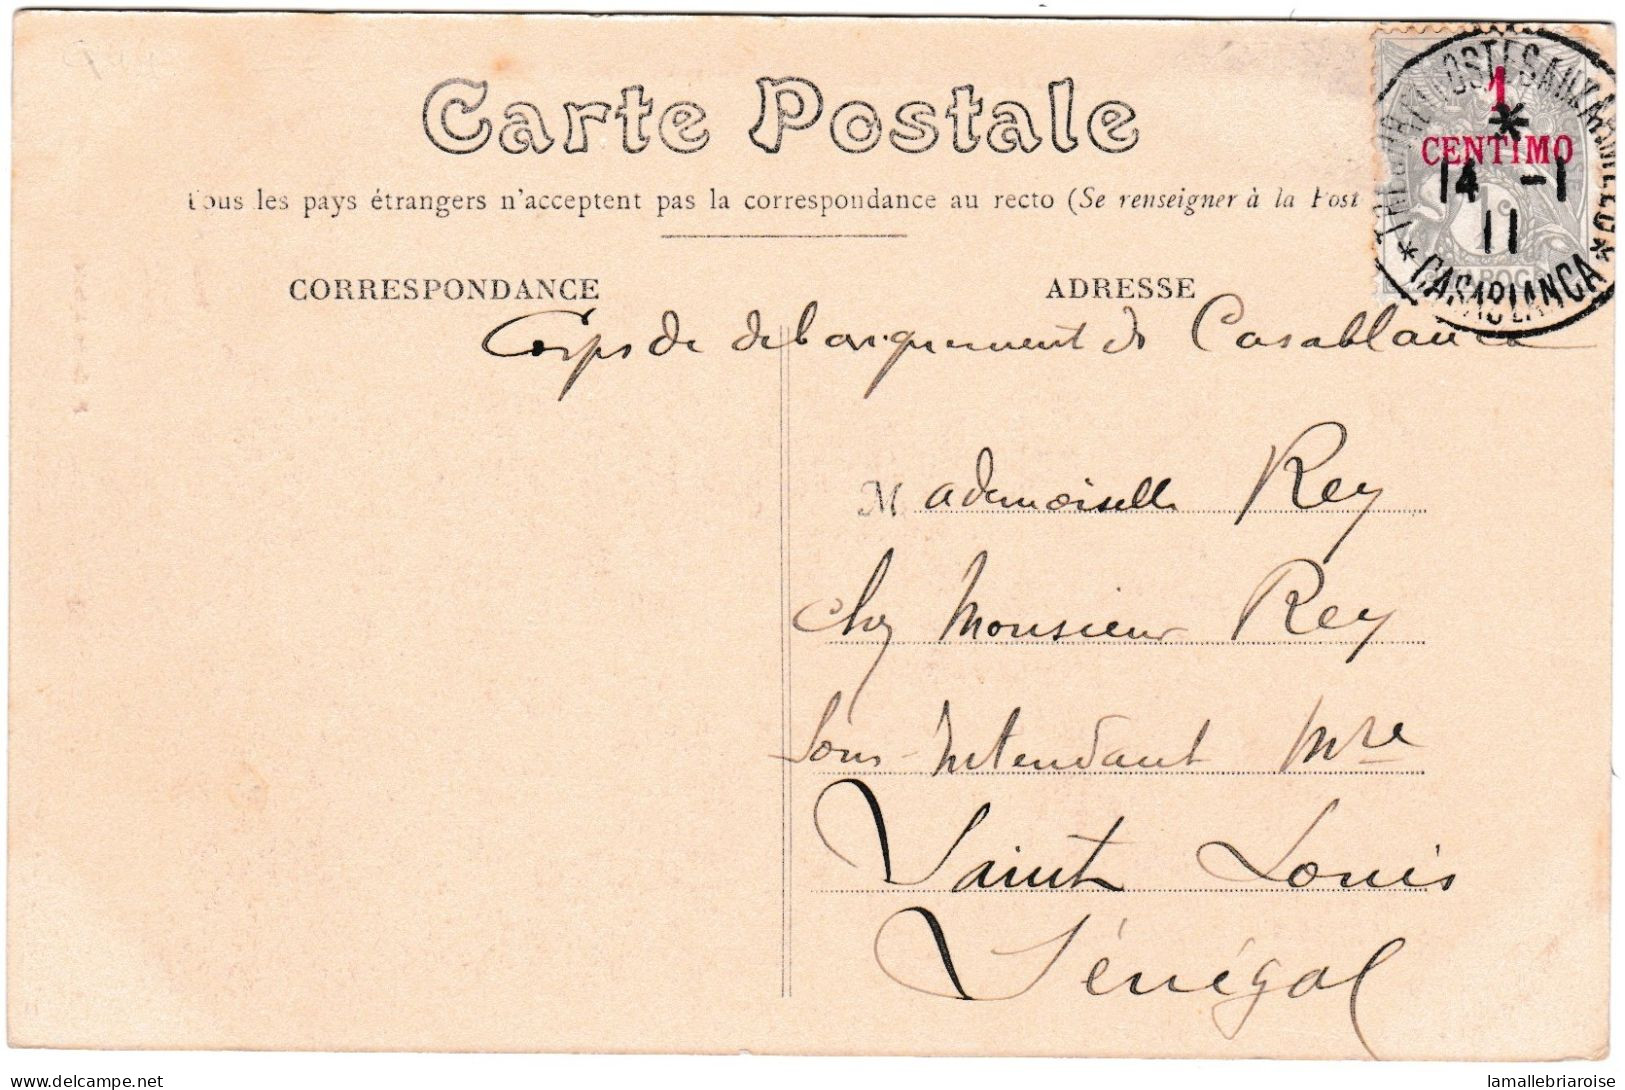 Carte Postale
Tous les pays étrangers n'acceptent pas la correspondance au recto (Se renseigner à la Post
CORRESPONDANCE
ADRESSE
1
CENTIMO
14 -1
11
* CASABLANCA *
Corps de debarquement de Casablanca
Mademoiselle Rey
Chez Monsieur Rey
Sous-Intendant Mre
Saint Louis
Sénégal
www.lamallebriaroise.com